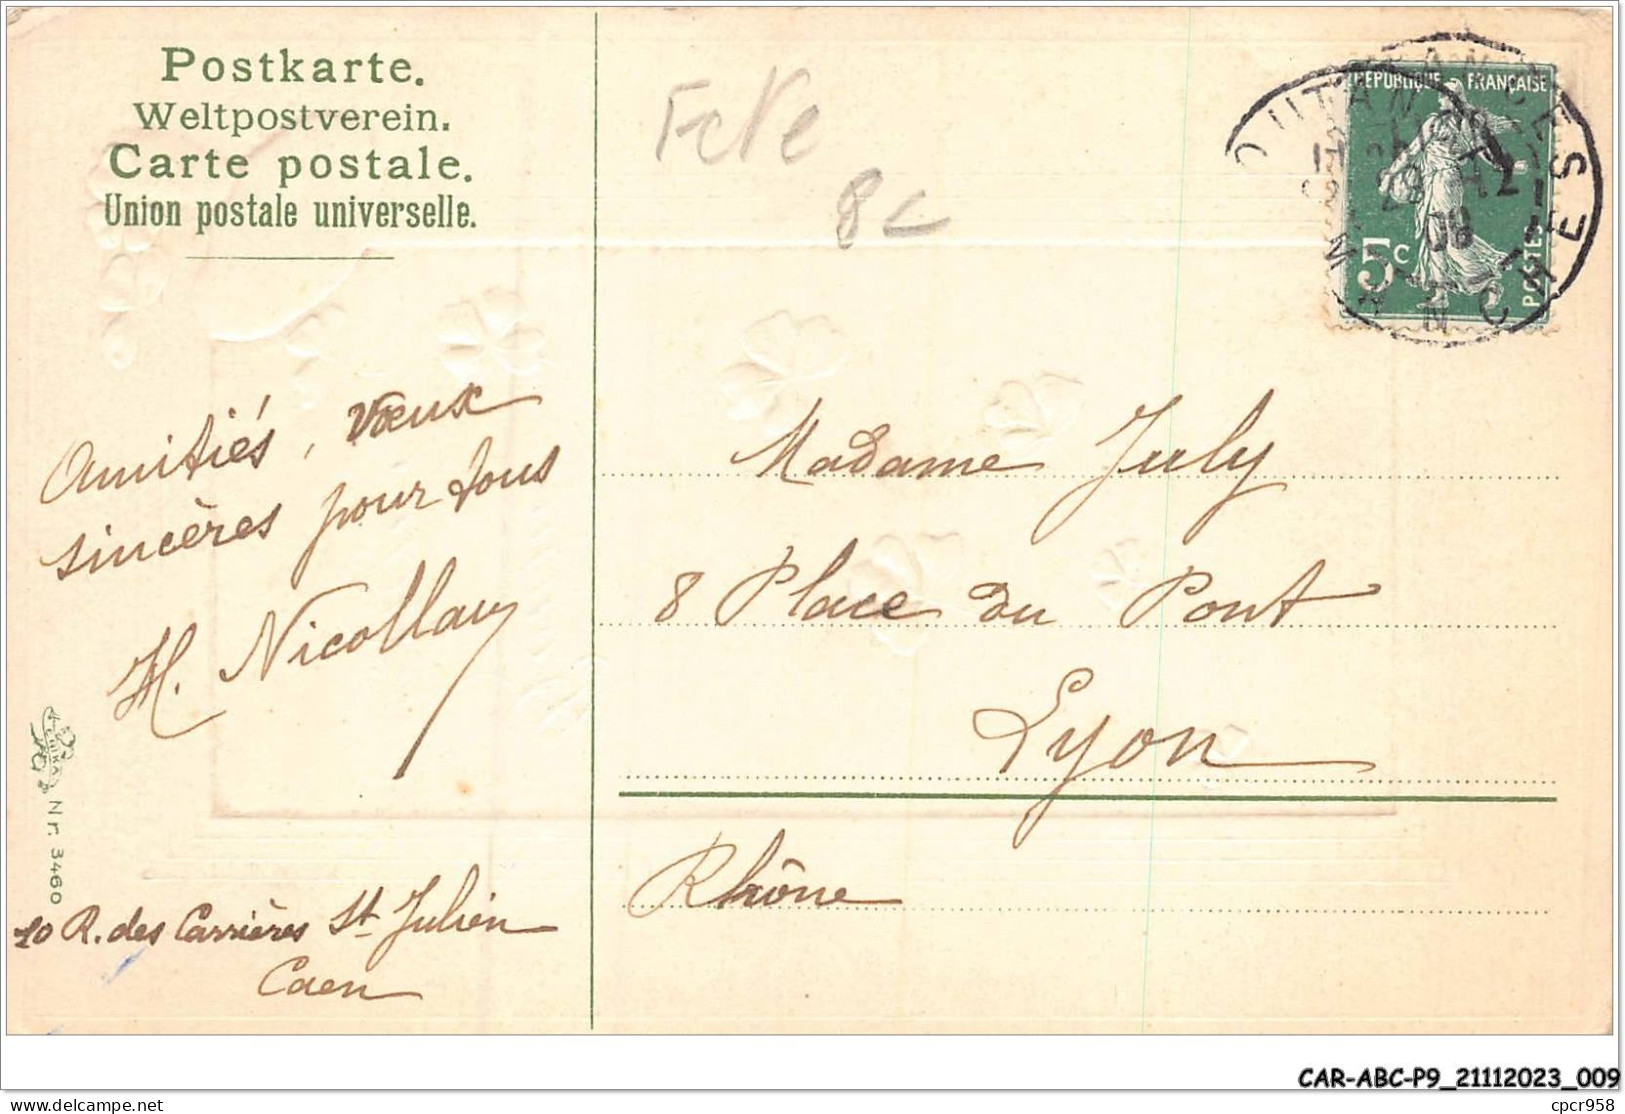 Postkarte.
Weltpostverein.
Carte postale.
Union postale universelle.
8c
RÉPUBLIQUE FRANÇAISE
5c
POSTES
OUTANCES
MANCHE
Amitiés, vœux
sincères pour tous
H. Nicollau
Nr. 3460
10 R. des Carrières St Julien
Caen
Madame July
8 Place du Pont
Lyon
Rhône
CAR-ABC-P9_21112023_009
delcampe.net
cpcr958